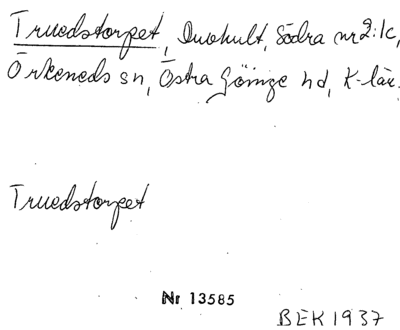 Truedstorpet, Duohult, Södra nr 2:1c,
Örkeneds sn, Östra Göinge hd, K-län.
Truedstorpet
Nr 13585
BEK 1937